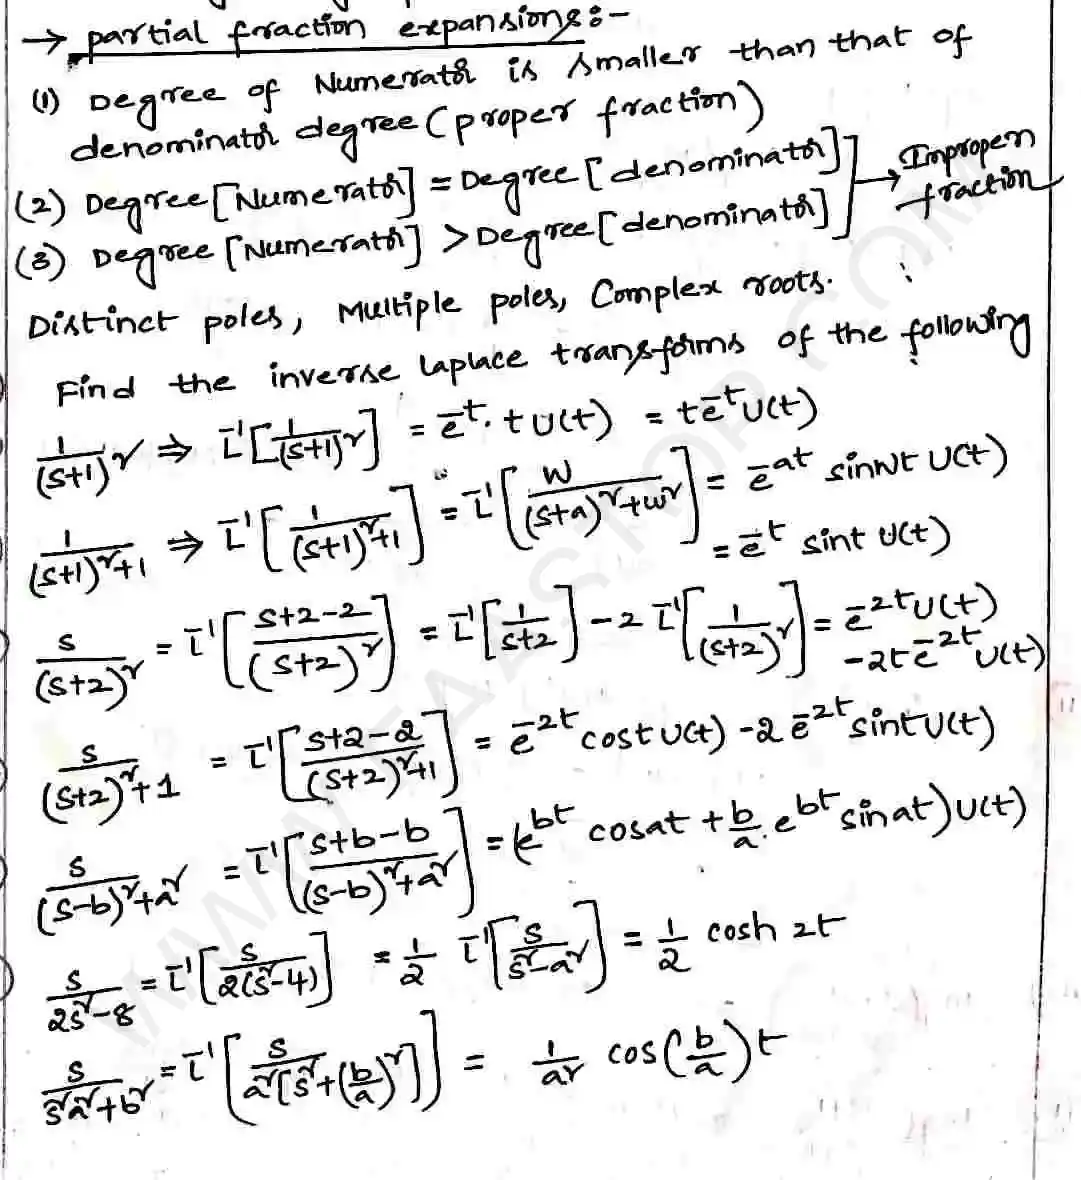 → partial fraction expansions:-
(1) Degree of Numerator is smaller than that of
denominator degree (proper fraction)
(2) Degree [Numerator] = Degree [denominator]
(3) Degree [Numerator] > Degree [denominator] → Improper fraction
Distinct poles, Multiple poles, Complex roots.
Find the inverse laplace transforms of the following
1/(s+1)² ⇒ L⁻¹[1/(s+1)²] = e⁻ᵗ. t U(t) = te⁻ᵗ U(t)
1/((s+1)²+1) ⇒ L⁻¹[1/((s+1)²+1)] = L⁻¹[W/((s+a)²+w²)] = e⁻ᵃᵗ sinwt U(t)
= e⁻ᵗ sint U(t)
s/(s+2)² = L⁻¹[(s+2-2)/(s+2)²] = L⁻¹[1/(s+2)] - 2 L⁻¹[1/(s+2)²] = e⁻²ᵗ U(t)
-2t e⁻²ᵗ U(t)
s/((s+2)²+1) = L⁻¹[(s+2-2)/((s+2)²+1)] = e⁻²ᵗ cost U(t) - 2 e⁻²ᵗ sint U(t)
s/((s-b)²+a²) = L⁻¹[(s+b-b)/((s-b)²+a²)] = (eᵇᵗ cosat + b/a. eᵇᵗ sinat) U(t)
s/(2s²-8) = L⁻¹[s/(2(s²-4))] = 1/2 L⁻¹[s/(s²-a²)] = 1/2 cosh 2t
s/(s²a²+b²) = L⁻¹[s/(a²[s²+(b/a)²])] = 1/a² cos(b/a)t